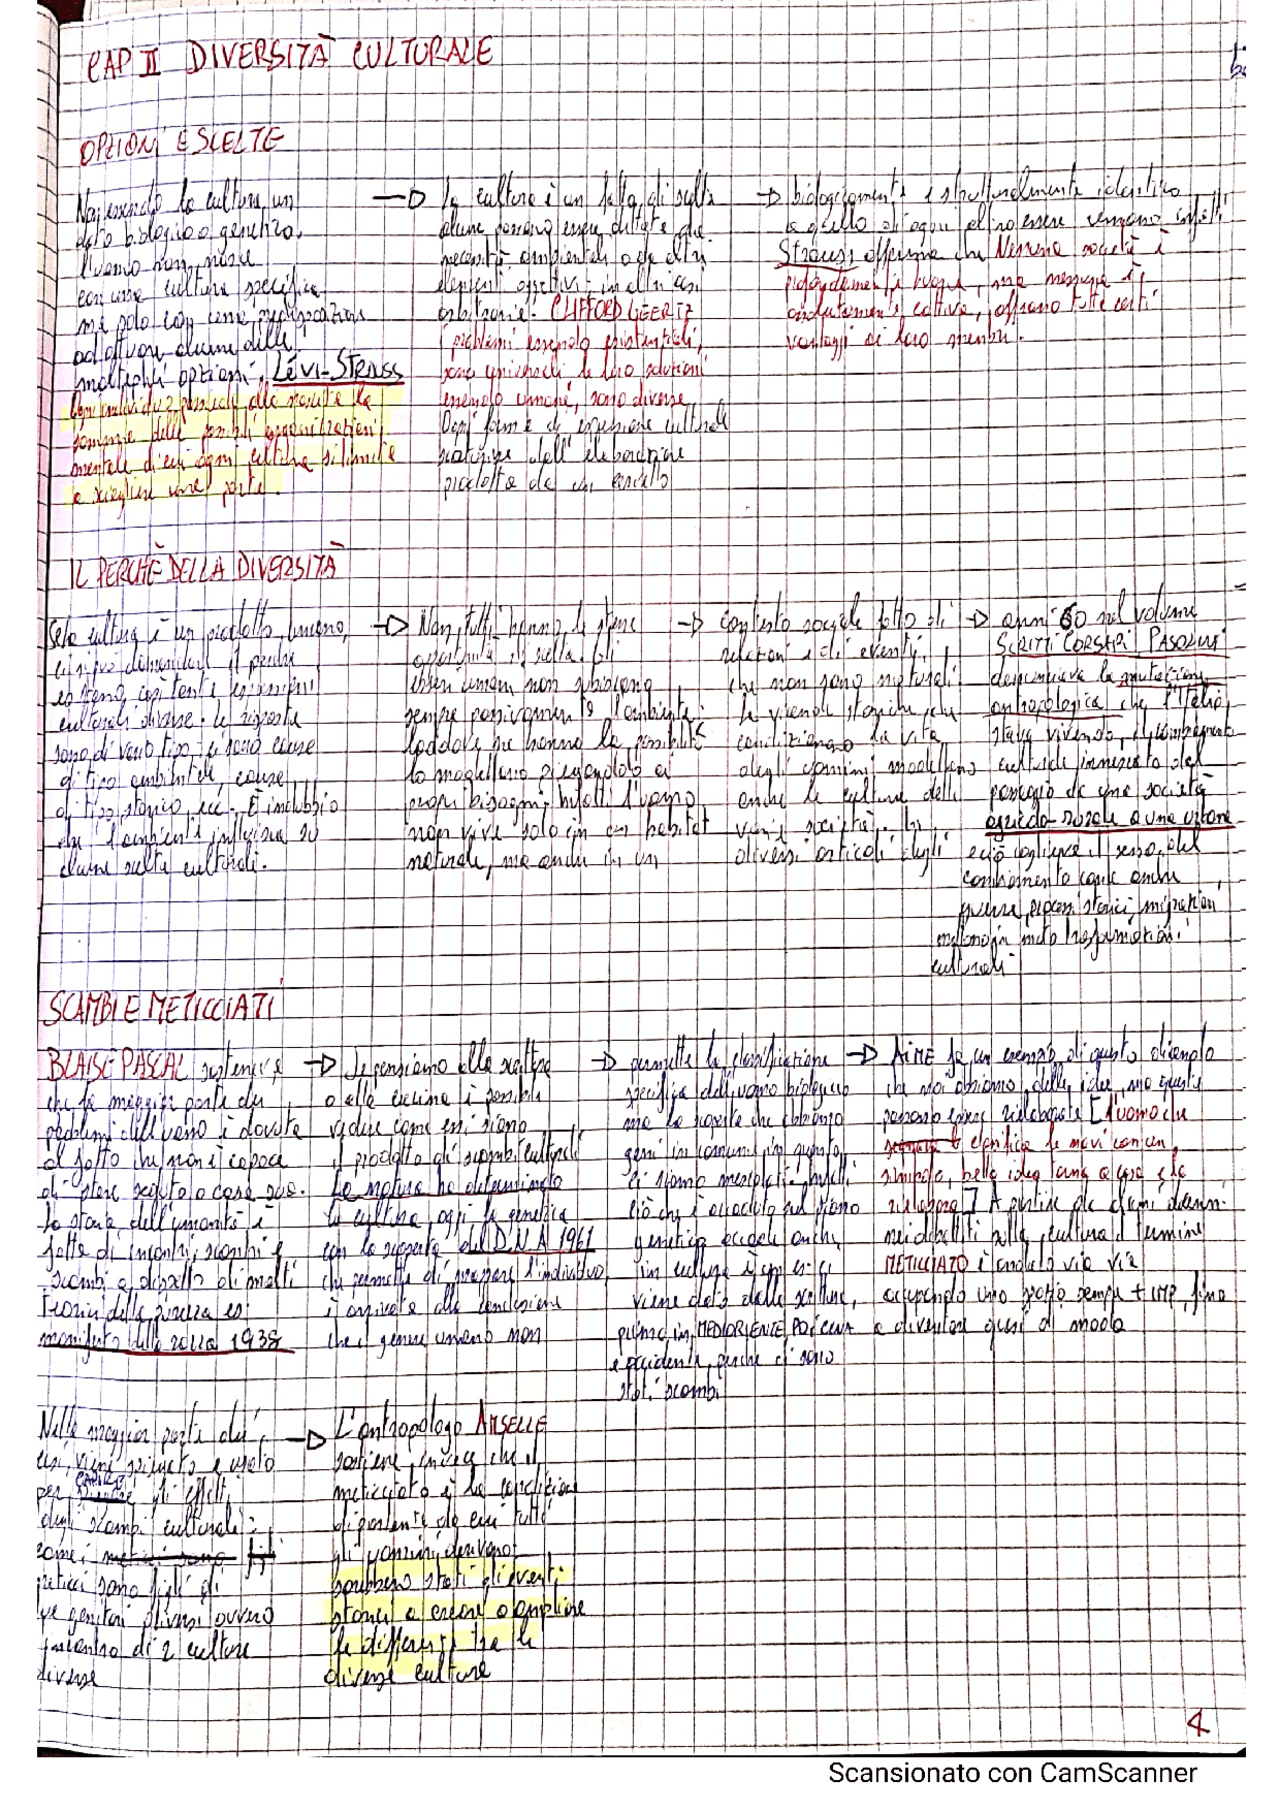 CAP II DIVERSITÀ CULTURALE
OPZIONI E SCELTE
Non essendo la cultura un
dato biologico o genetico,
l'uomo non nasce
con una cultura specifica,
ma solo con una predisposizione
ad attivare alcune delle
molteplici opzioni. LÉVI-STRAUSS
Ogni individuo possiede alla nascita la
somma delle possibili organizzazioni
mentale di cui ogni cultura si limita
a scegliere una parte.
→ La cultura è un fatto di scelte
alcune possono essere dettate da
necessità ambientali o da altri
elementi oggettivi, in altri casi
arbitrarie. CLIFFORD GEERTZ
i problemi essendo esistenziali,
sono universali le loro soluzioni
essendo umane, sono diverse
Ogni forma di espressione culturale
scaturisce dall'elaborazione
prodotta da un cervello
→ biologicamente e strutturalmente identico
a quello di ogni altro essere umano infatti
Strauss afferma che Nessuna società è
profondamente buona, ma nessuna è
assolutamente cattiva, offrono tutte certi
vantaggi ai loro membri.
IL PERCHÈ DELLA DIVERSITÀ
Se la cultura è un prodotto umano,
ci si può domandare il perché
esistano così tante espressioni
culturali diverse. le risposte
sono di vario tipo: ci sono cause
di tipo ambientale, cause
di tipo storico, ecc. È indubbio
che l'ambiente influisca su
alcune scelte culturali.
→ Non tutti hanno le stesse
opportunità di scelta. Gli
esseri umani non subiscono
sempre passivamente l'ambiente;
laddove ne hanno la possibilità
lo modellano piegandolo ai
propri bisogni. Infatti l'uomo
non vive solo in un habitat
naturale, ma anche in un
→ contesto sociale fatto di
relazioni e di eventi,
che non sono naturali
le vicende storiche, che
condizionano la vita
degli uomini modellano
anche le culture delle
varie società. In
diversi articoli degli
→ anni 60 nel volume
SCRITTI CORSARI, PASOLINI
denunciava la mutazione
antropologica che l'Italia
stava vivendo, il cambiamento
culturale innescato dal
passaggio da una società
agricolo-rurale a una urbana
e ciò coglieva il senso del
cambiamento anche
guerre, processi storici, migrazioni
mettono in moto trasformazioni
culturali
SCAMBI E METICCIATI
BLAISE PASCAL sosteneva
che la maggior parte dei
problemi dell'uomo è dovuta
al fatto che non è capace
di stare seduto a casa sua.
La storia dell'umanità è
fatta di incontri, scontri e
scambi a dispetto di molti
teorici della purezza es:
manifesto della razza 1938
→ Se pensiamo alla scrittura
o alla cucina è possibile
vedere come essi siano
il prodotto di scambi culturali
La natura ha determinato
la cultura, oggi la genetica
con la scoperta del DNA 1961
che permette di mappare l'individuo,
è arrivata alla conclusione
che il genere umano non
→ permette la classificazione
specifica dell'uomo biologico
ma la scoperta che abbiamo
geni in comune, in quanto
ci siamo mescolati. Infatti
ciò che è accaduto sul piano
genetico accade anche
in cultura è un es. ci
viene dato dalla scrittura,
prima in MEDIORIENTE POI CINA
e occidente, perché ci sono
stati scambi
→ AIME fa un esempio di questo dicendo
che noi abbiamo delle idee, ma queste
possono essere rielaborate [l'uomo che
clonifica le navi con un
simbolo, bella idea torna a casa e la
rielabora] A partire da alcuni decenni
nei dibattiti sulla cultura il termine
METICCIATO è andato via via
occupando uno spazio sempre + IMP, fino
a diventare quasi di moda
Nella maggior parte dei
casi, viene spiegato e usato
per CAPIRE gli effetti
degli scambi culturali:
come i
meticci sono figli di
genitori diversi ovvero
incontro di 2 culture
diverse
→ L'antropologo AMSELLE
sostiene invece che il
meticciato è la condizione
di partenza da cui tutti
gli uomini derivano,
sarebbero stati gli eventi
storici a creare o ampliare
le differenze tra le
diverse culture
4
Scansionato con CamScanner